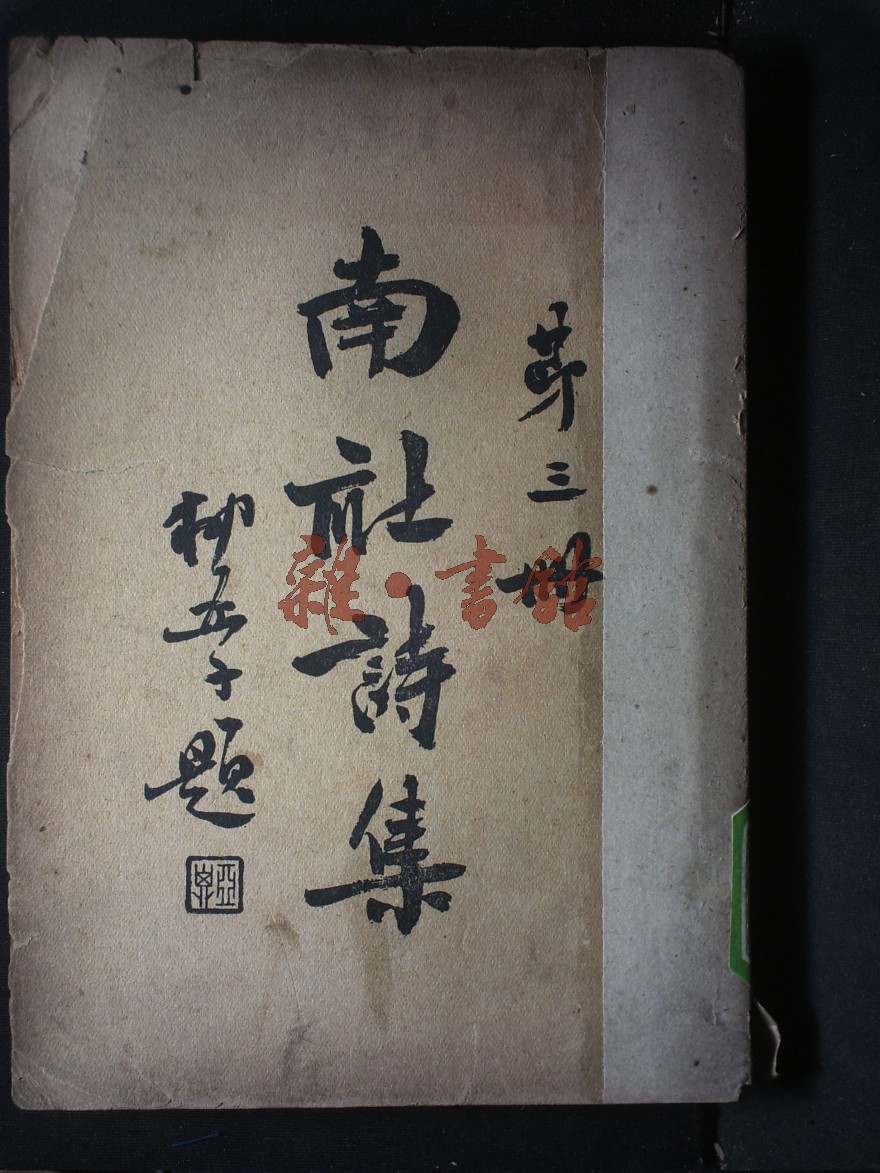 第三册
南社詩集
柳亞子題
亞子
雜·書館